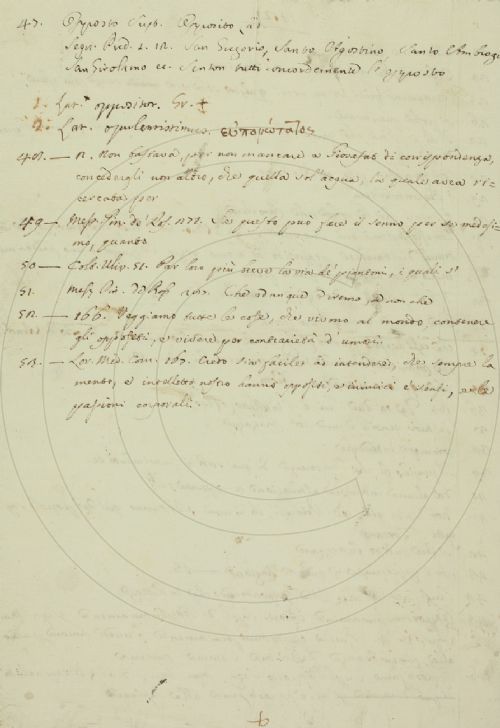 47. Opposto Sust. Opposito Add.
Segn. Pred. 1. 12. San Gregorio, Santo Agostino Santo Ambrogi
San Girolamo ec. senton tutti concordemente l'opposto
1. Lat. oppositor. Gr. +
2. Lat. opulentissimus. εὐπορώτατος
48. — n. Non bastava, per non mancare a di corrispondenza,
concedergli non altro, che quella sol' acqua, la quale avea ri
cercata per
49 — Mess. Se questo può fare il senno per se medesi
mo, quando
50 — Colt. Uliv. 51. Par loro più breve la via de' piantoni, i quali s'
51. Mess. Che adunque diremo, a voi che
52. — 166. Veggiamo tutte le cose, che viviamo al mondo contenere
gli oppositi, e vivere per contrarietà d'umori.
53. — Lor. Med. Com. 167. Credo sia facile ad intendere, che sempre la
mente, e intelletto nostro hanno oppositi, e inimici e sensi, e le
passioni corporali.